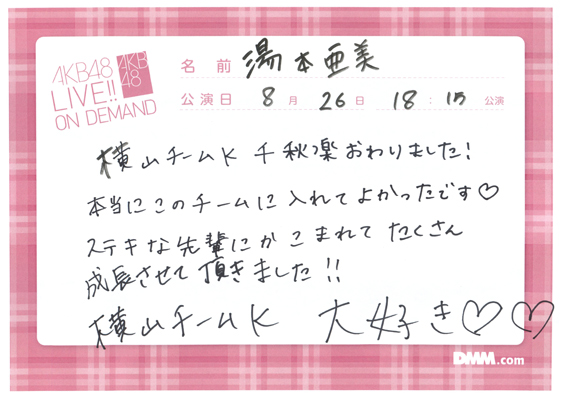 AKB48
LIVE!!
ON DEMAND
AKB
48
名前 湯本亜美
公演日 8月26日 18:15公演
横山チームK 千秋楽おわりました!
本当にこのチームに入れてよかったです♡
ステキな先輩にかこまれてたくさん
成長させて頂きました!!
横山チームK 大好き♡♡
DMM.com